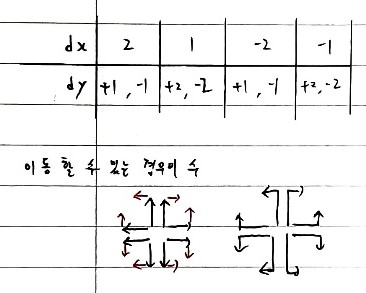 dx 2 1 -2 -1
dy +1, -1 +2, -2 +1, -1 +2, -2
이동 할 수 있는 경우의 수